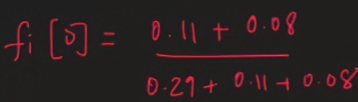 fi [0] = 0.11 + 0.08
0.29 + 0.11 + 0.08